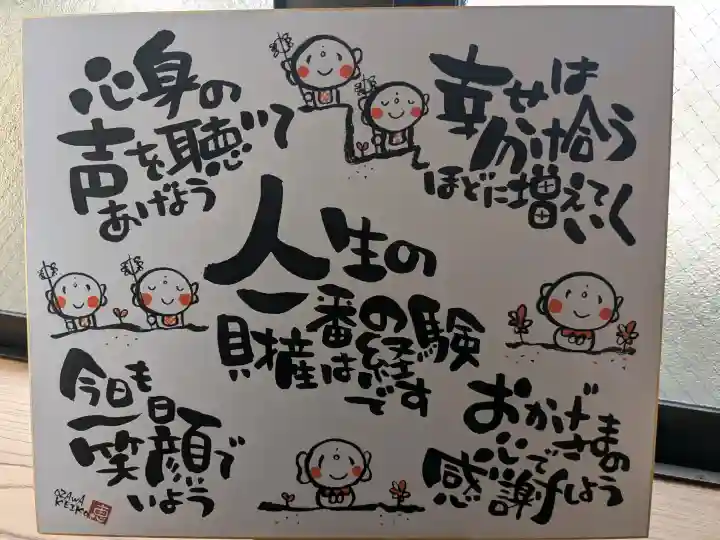 心身の
声を聴いて
あげよう
幸せは
分け拾う
ほどに増えて
いく
人生の
一番の
財産は経験
です
今日も
一日
笑顔で
いよう
おかげさまの
心で
感謝しよう
OZAWA
KEIKO
恵